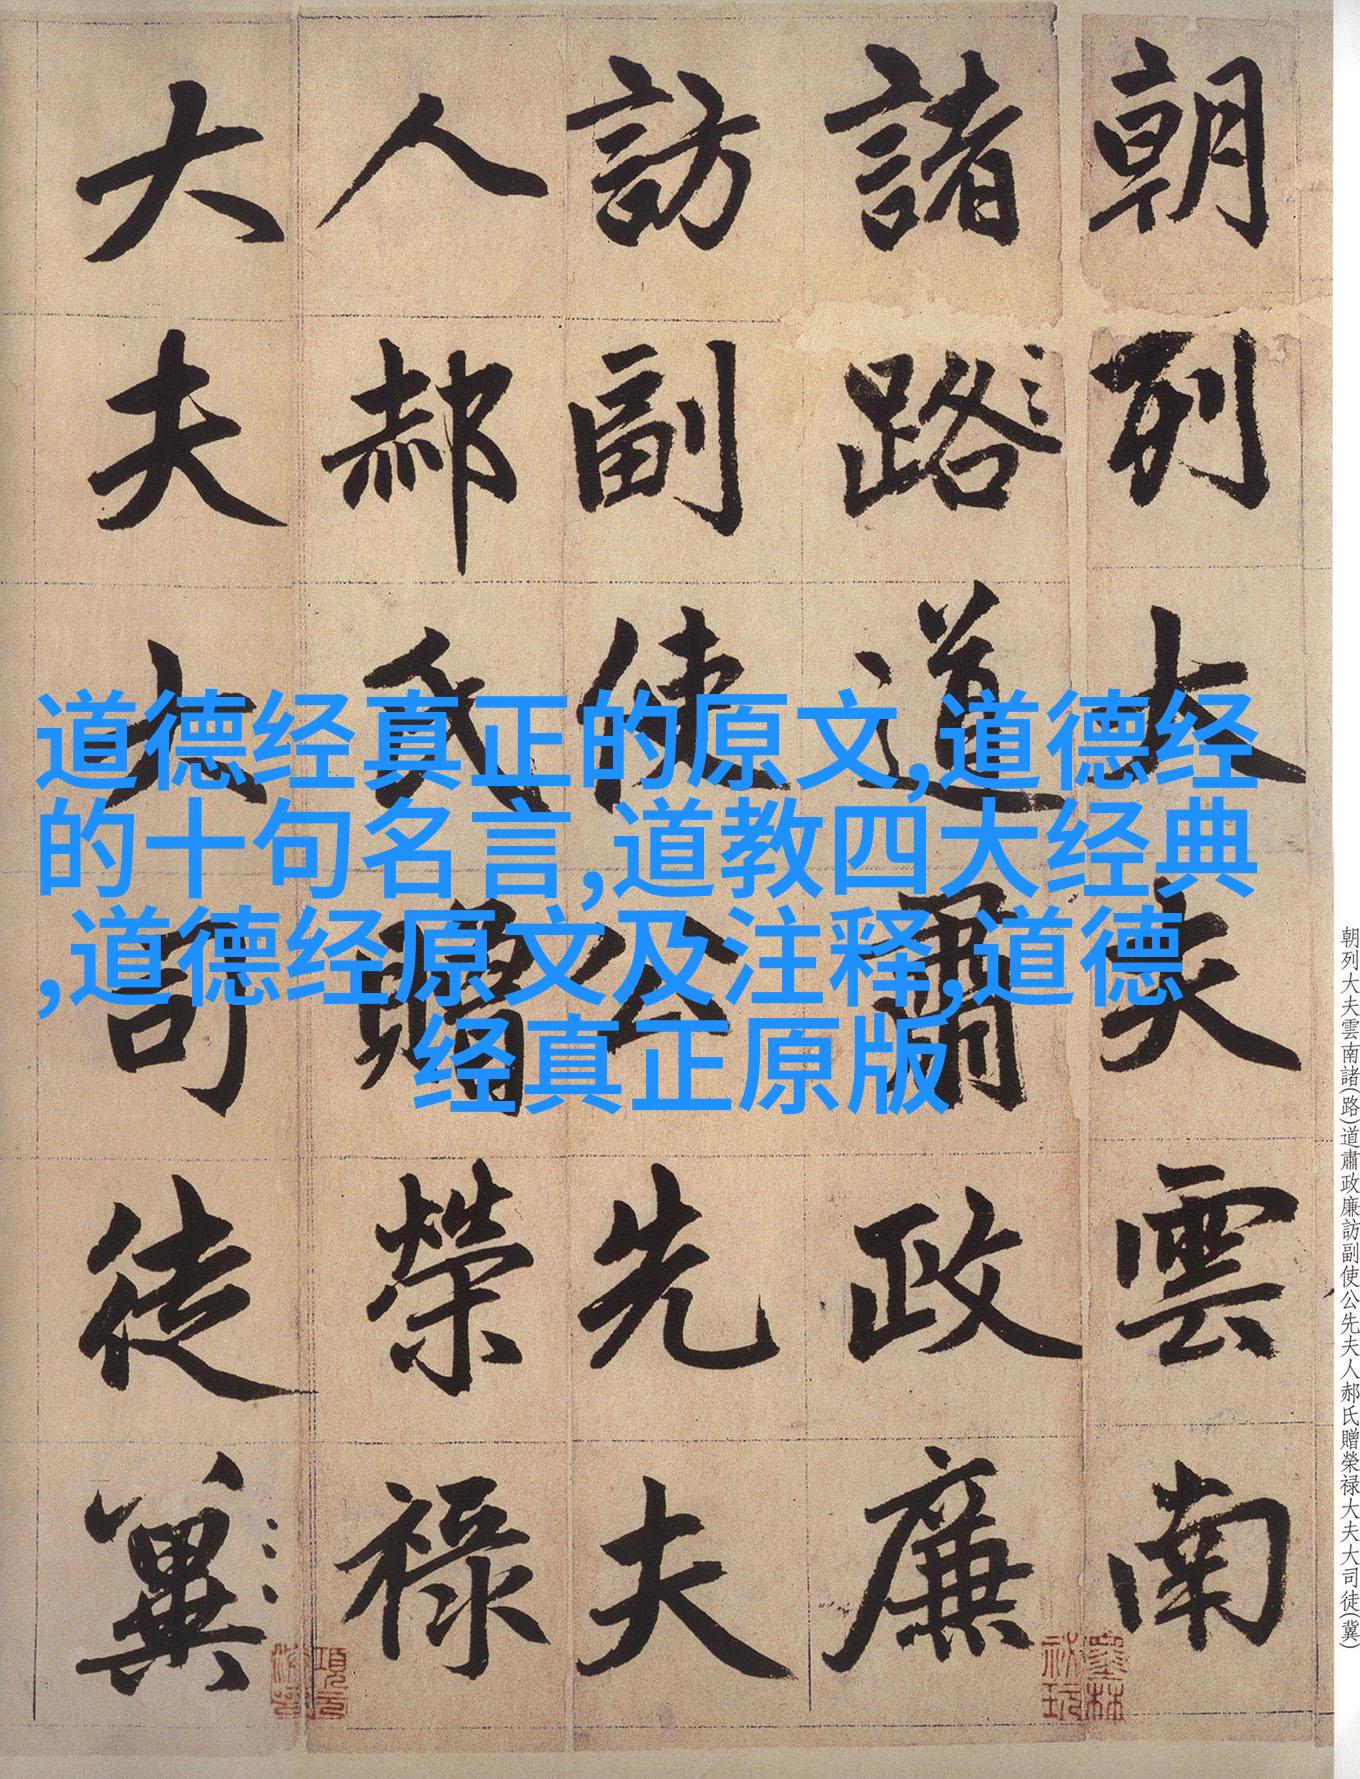 道德经真正的原文,道德经
的十句名言,道教四大经典
,道德经原文及注释,道德
经真正原版
朝列大夫雲南
諸路道肅政廉
訪副使公先夫
人郝氏贈榮祿
大夫大司徒冀
朝列大夫雲南諸(路)道肅政廉訪副使公先夫人郝氏贈榮禄大夫大司徒(冀)